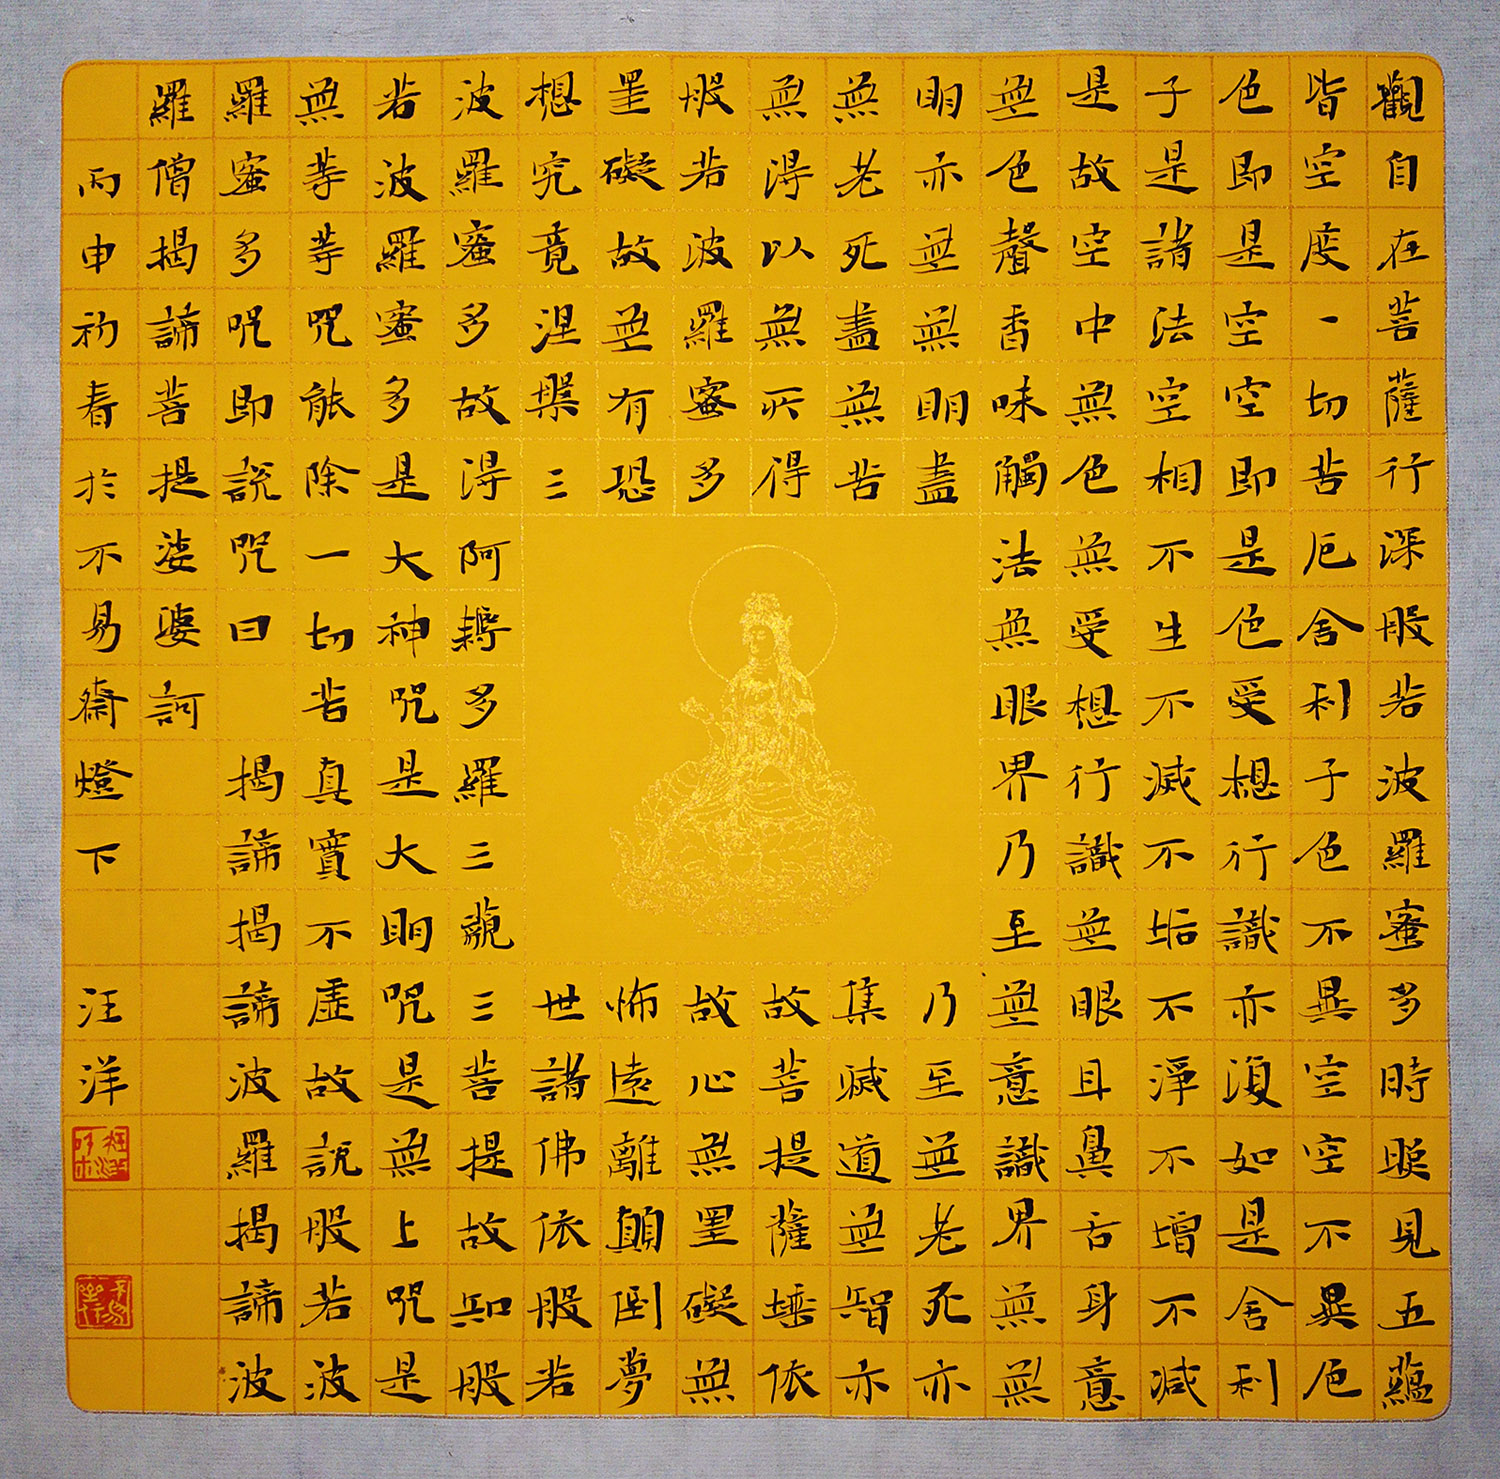 觀自在菩薩行深般若波羅蜜多時照見五蘊
皆空度一切苦厄舍利子色不異空空不異色
色即是空空即是色受想行識亦復如是舍利
子是諸法空相不生不滅不垢不淨不增不減
是故空中無色無受想行識無眼耳鼻舌身意
無色聲香味觸法無眼界乃至無意識界無無
明亦無無明盡乃至無老死亦
無老死盡無苦集滅道無智亦
無得以無所得故菩提薩埵依
般若波羅蜜多故心無罣礙無
罣礙故無有恐怖遠離顛倒夢
想究竟涅槃三世諸佛依般若
波羅蜜多故得阿耨多羅三藐三菩提故知般
若波羅蜜多是大神咒是大明咒是無上咒是
無等等咒能除一切苦真實不虛故說般若波
羅蜜多咒即說咒曰 揭諦揭諦波羅揭諦波
羅僧揭諦菩提娑婆訶
丙申初春於不易齋燈下 汪洋